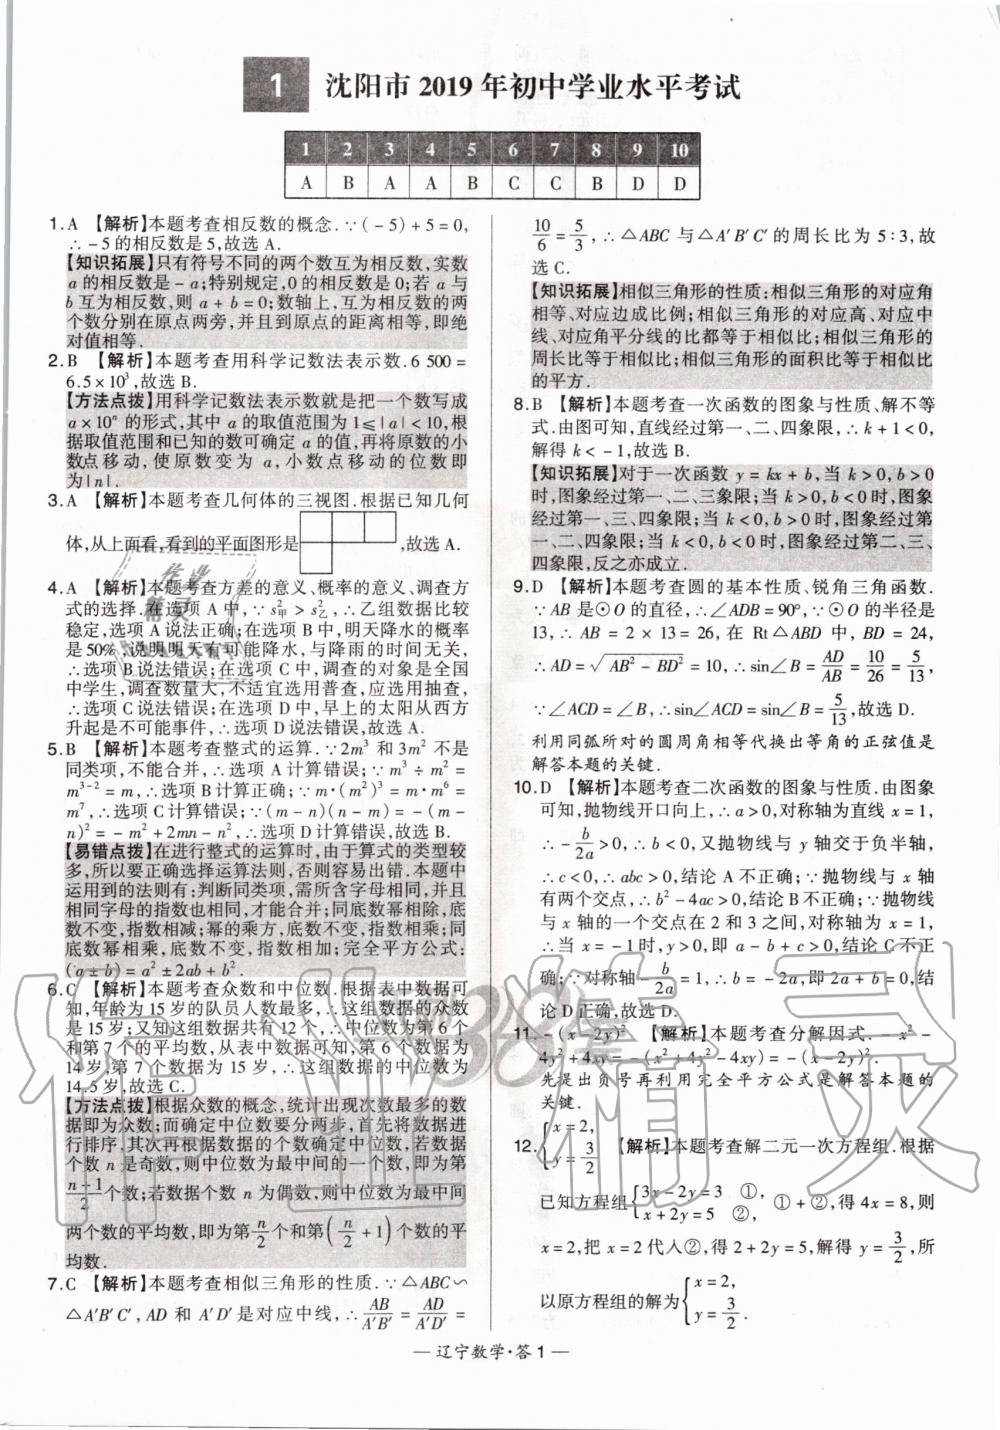 1 沈阳市 2019 年初中学业水平考试
1 2 3 4 5 6 7 8 9 10
A B A A B C C B D D
1. A 【解析】本题考查相反数的概念. ∵(-5)+5=0,
∴-5的相反数是5,故选 A.
【知识拓展】只有符号不同的两个数互为相反数,实数
a的相反数是-a;特别规定,0的相反数是0;若 a 与
b 互为相反数,则 a+b=0;数轴上,互为相反数的两
个数分别在原点两旁,并且到原点的距离相等,即绝
对值相等.
2. B 【解析】本题考查用科学记数法表示数. 6 500=
6.5×10³,故选 B.
【方法点拨】用科学记数法表示数就是把一个数写成
a×10ⁿ 的形式,其中 a 的取值范围为 1≤|a|<10,根
据取值范围和已知的数可确定 a 的值,再将原数的小
数点移动,使原数变为 a,小数点移动的位数即
为|n|.
3. A 【解析】本题考查几何体的三视图. 根据已知几何
体,从上面看,看到的平面图形是 ,故选 A.
4. A 【解析】本题考查方差的意义、概率的意义、调查方
式的选择. 在选项 A 中,∵s²甲>s²乙,∴乙组数据比较
稳定,选项 A 说法正确;在选项 B 中,明天降水的概率
是50%,说明明天有可能降水,与降雨的时间无关,
∴选项 B 说法错误;在选项 C 中,调查的对象是全国
中学生,调查数量大,不适宜选用普查,应选用抽查,
∴选项 C 说法错误;在选项 D 中,早上的太阳从西方
升起是不可能事件,∴选项 D 说法错误,故选 A.
5. B 【解析】本题考查整式的运算. ∵2m³ 和 3m² 不是
同类项,不能合并,∴选项 A 计算错误;∵m³÷m²=
m³⁻²=m,∴选项 B 计算正确;∵m·(m²)³=m·m⁶=
m⁷,∴选项 C 计算错误;∵(m-n)(n-m)=-(m-
n)²=-m²+2mn-n²,∴选项 D 计算错误,故选 B.
【易错点拨】在进行整式的运算时,由于算式的类型较
多,所以要正确选择运算法则,否则容易出错. 本题中
运用到的法则有:判断同类项,需所含字母相同,并且
相同字母的指数也相同,才能合并;同底数幂相除,底
数不变,指数相减;幂的乘方,底数不变,指数相乘;同
底数幂相乘,底数不变,指数相加;完全平方公式:
(a±b)=a²±2ab+b².
6. C 【解析】本题考查众数和中位数. 根据表中数据可
知,年龄为 15 岁的队员人数最多,∴这组数据的众数
是 15 岁;又知这组数据共有 12 个,∴中位数为第 6
和第 7 个的平均数,从表中数据可知,第 6 个数据为
14 岁,第 7 个数据为 15 岁,∴这组数据的中位数为
14.5岁,故选 C.
【方法点拨】根据众数的概念,统计出现次数最多的数
据即为众数;而确定中位数要分两步,首先将数据进
行排序,其次再根据数据的个数确定中位数,若数据
个数 n 是奇数,则中位数为最中间的一个数,即为第
(n-1)/2 个数;若数据个数 n 为偶数,则中位数为最中间
两个数的平均数,即为第 n/2 个和第(n/2+1)个数的平
均数.
7. C 【解析】本题考查相似三角形的性质. ∵△ABC∽
△A′B′C′,AD 和 A′D′是对应中线,∴AB/A′B′=AD/A′D′=
10/6=5/3,∴△ABC 与△A′B′C′的周长比为 5:3,故
选 C.
【知识拓展】相似三角形的性质:相似三角形的对应角
相等、对应边成比例;相似三角形的对应高、对应中
线、对应角平分线的比都等于相似比;相似三角形的
周长比等于相似比;相似三角形的面积比等于相似比
的平方.
8. B 【解析】本题考查一次函数的图象与性质、解不等
式. 由图可知,直线经过第一、二、四象限,∴k+1<0,
解得 k<-1,故选 B.
【知识拓展】对于一次函数 y=kx+b,当 k>0,b>0
时,图象经过第一、二、三象限;当 k>0,b<0时,图象
经过第一、三、四象限;当 k<0,b>0时,图象经过第
一、二、四象限;当 k<0,b<0时,图象经过第二、三、
四象限,反之亦成立.
9. D 【解析】本题考查圆的基本性质、锐角三角函数.
∵AB 是⊙O 的直径,∴∠ADB=90°,∵⊙O 的半径是
13,∴AB=2×13=26,在 Rt△ABD 中,BD=24,
∴AD=√(AB²-BD²)=10,∴sin∠B=AD/AB=10/26=5/13,
∵∠ACD=∠B,∴sin∠ACD=sin∠B=5/13,故选 D.
利用同弧所对的圆周角相等代换出等角的正弦值是
解答本题的关键.
10. D 【解析】本题考查二次函数的图象与性质. 由图象
可知,抛物线开口向上,∴a>0,对称轴为直线 x=1,
∴-b/2a>0,∴b<0,又抛物线与 y 轴交于负半轴,
∴c<0,∴abc>0,结论 A 不正确;∵抛物线与 x 轴
有两个交点,∴b²-4ac>0,结论 B 不正确;∵抛物线
与 x 轴的一个交点在 2 和 3 之间,对称轴为 x=1,
∴当 x=-1时,y>0,即 a-b+c>0,结论 C 不正
确;∵对称轴-b/2a=1,∴b=-2a,即2a+b=0,结
论 D 正确,故选 D.
11. -(x-2y)² 【解析】本题考查分解因式. -x²-
4y²+4xy=-(x²+4y²-4xy)=-(x-2y)².
先提出负号再利用完全平方公式是解答本题的
关键.
12. {x=2, y=3/2 【解析】本题考查解二元一次方程组. 根据
已知方程组{3x-2y=3 ①, x+2y=5 ②, ①+②,得 4x=8,则
x=2,把 x=2代入②,得 2+2y=5,解得 y=3/2,所
以原方程组的解为{x=2, y=3/2.
— 辽宁数学·答 1 —